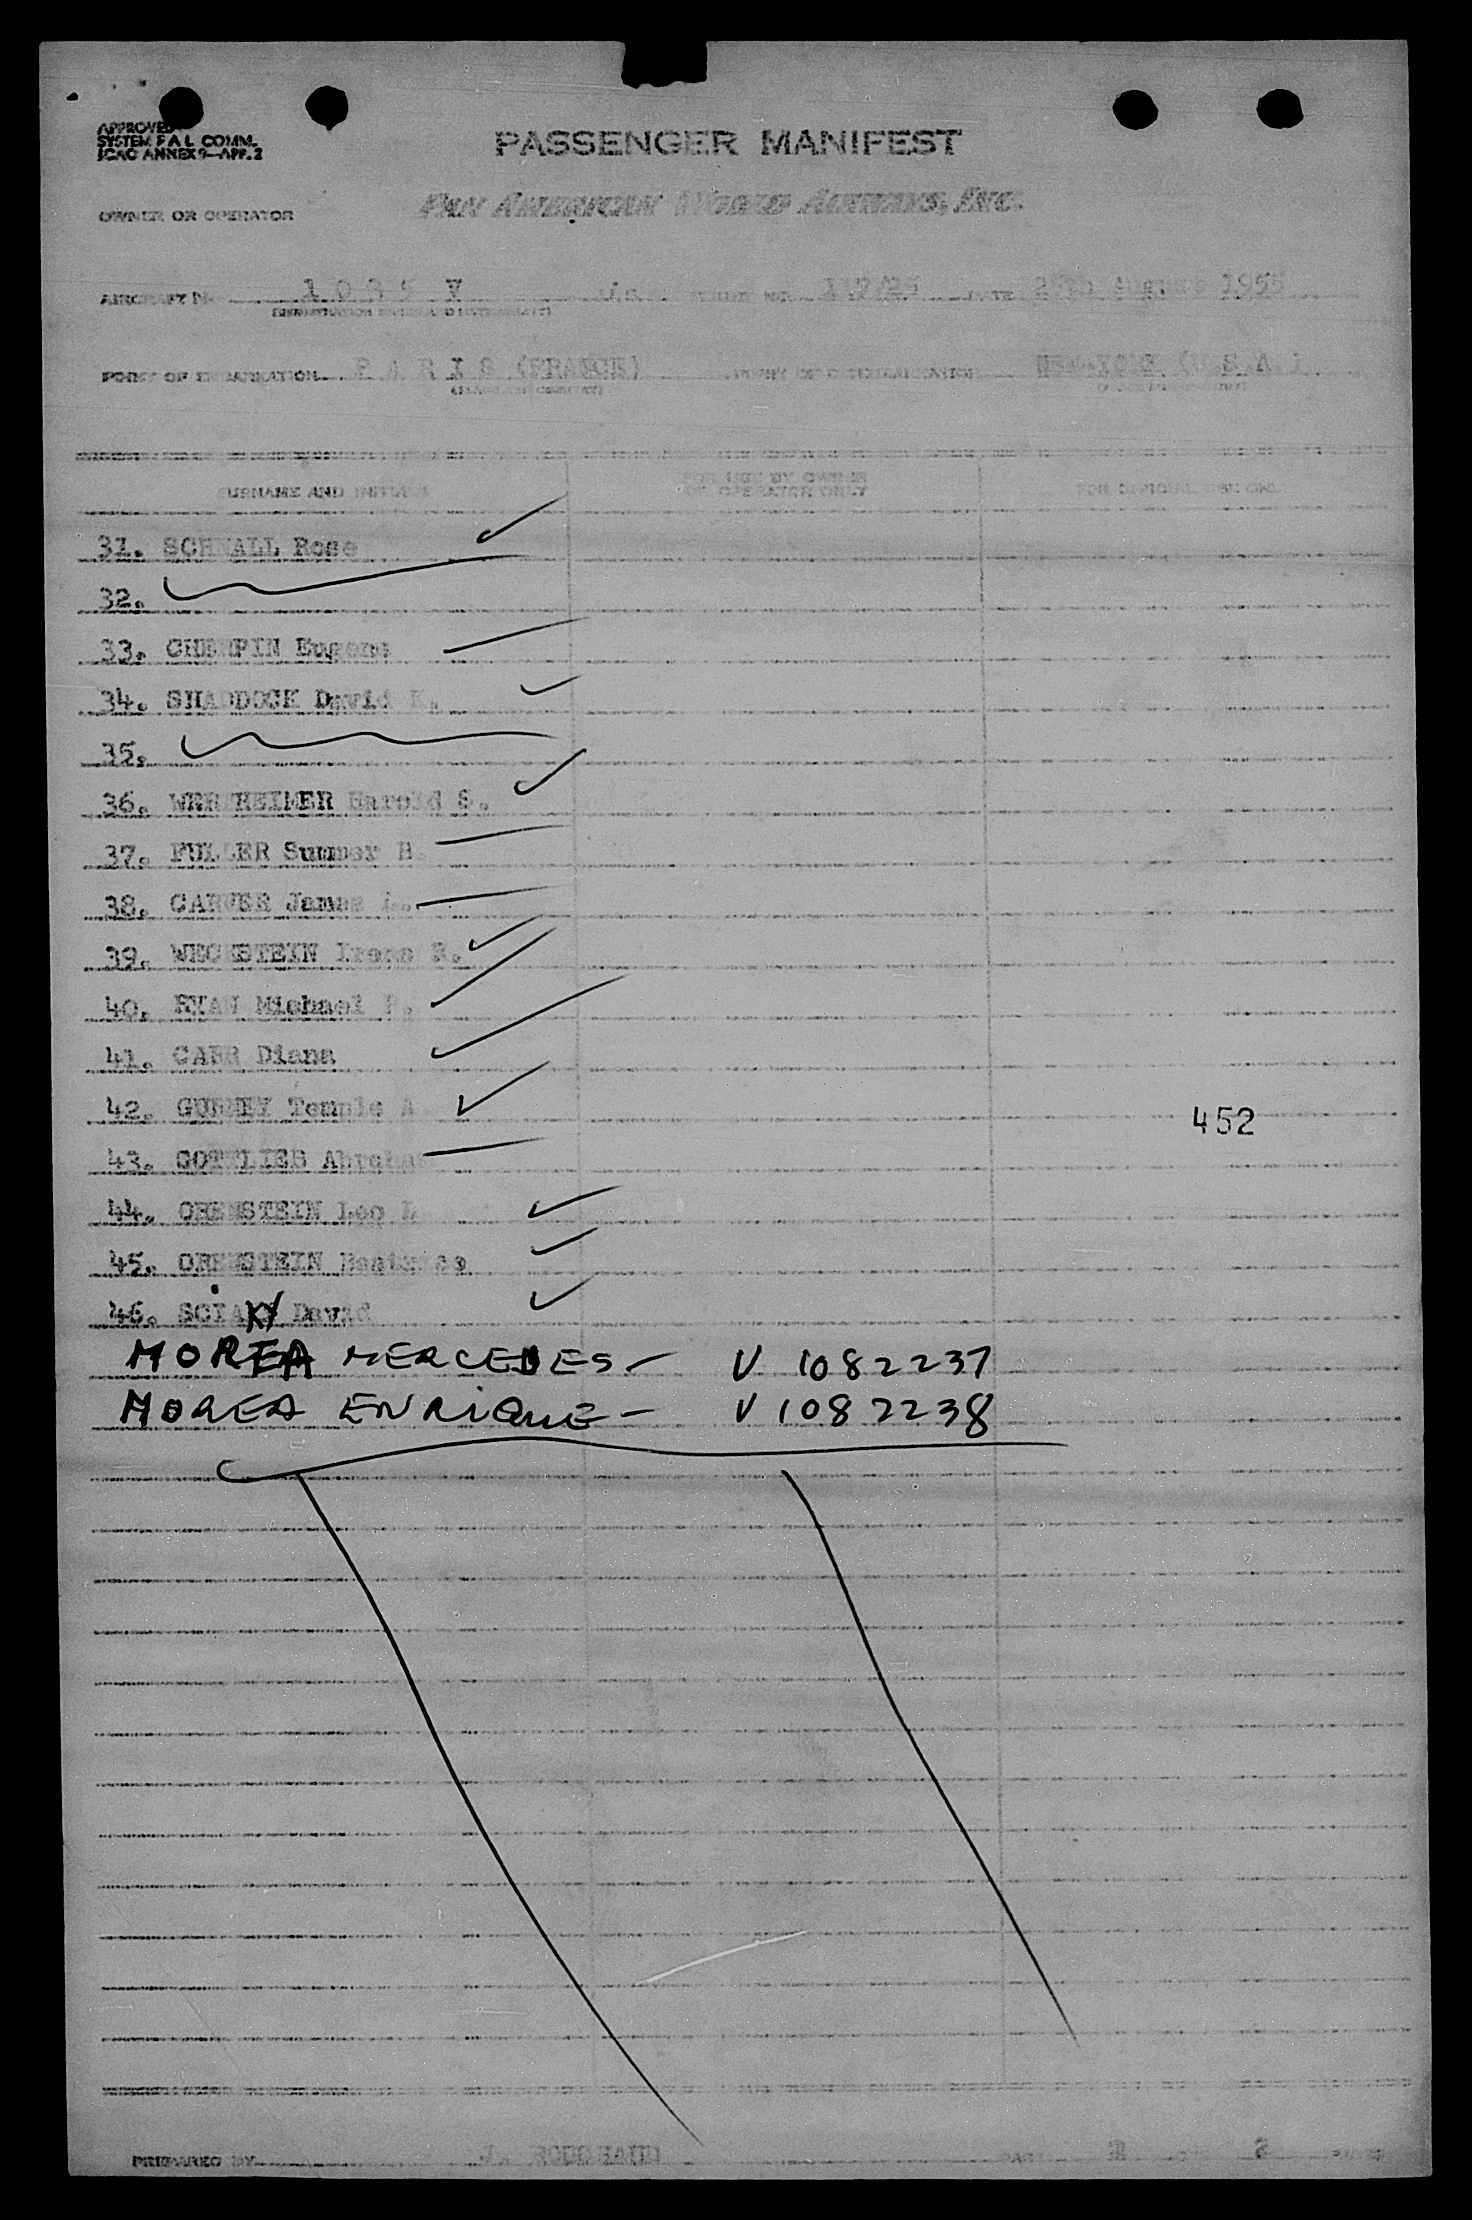 APPROVED
SYSTEM F A L COMM.
ICAO ANNEX 9—APP. 2
PASSENGER MANIFEST
OWNER OR OPERATOR PAN AMERICAN WORLD AIRWAYS, INC.
AIRCRAFT No 1 0 3 5 V U.S.A. FLIGHT NO. 117/25 DATE August 1955
POINT OF EMBARKATION P A R I S (FRANCE) POINT OF DISEMBARKATION NEW-YORK (U.S.A.)
SURNAME AND INITIALS
FOR USE BY OWNER
OR OPERATOR ONLY
FOR OFFICIAL USE ONLY
31. SCHNALL Rose
32.
33. CHERPIN Eugene
34. SHADDOCK David
35.
36. WERTHEIMER Harold S.
37. FULLER Sumner H.
38. CARVER James
39. WECHSTEIN Irene R.
40. RYAN Michael P.
41. CARR Diana
42. GURNEY Temple A
43. GOTTLIEB Abraham
44. ORENSTEIN Leo L
45. ORENSTEIN Beatrice
46. SCIAKY David
452
MOREA MERCEDES - V 1082237
MOREA ENRIQUE - V 1082238
PREPARED BY